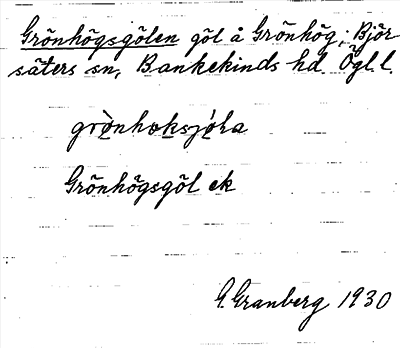 Grönhögsgölen göl å Grönhög; Björ
säters sn, Bankekinds hd. Ögl. l.
Grönhögsgöl ek
G. Granberg 1930